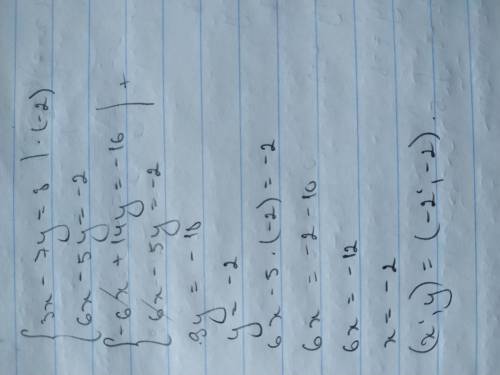 { 3x - 7y = 8 | · (-2)
6x - 5y = -2
{ -6x + 14y = -16 | +
6x - 5y = -2
9y = -18
y = -2
6x - 5 · (-2) = -2
6x = -2 - 10
6x = -12
x = -2
(x, y) = (-2, -2).